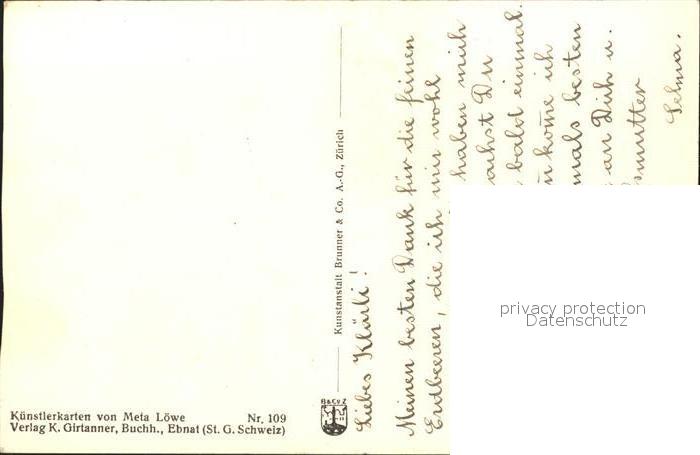 Künstlerkarten von Meta Löwe Nr. 109
Verlag K. Girtanner, Buchh., Ebnat (St. G. Schweiz)
Kunstanstalt Brunner & Co. A.-G., Zürich
B & Co Z
Liebes Klärli!
Meinen besten Dank für die feinen
Erdbeeren, die ich mir wohl
haben mich
achst Du
bald einmal.
kom̄e ich
mals besten
an Dich u.
smutter
Selma.
privacy protection
Datenschutz